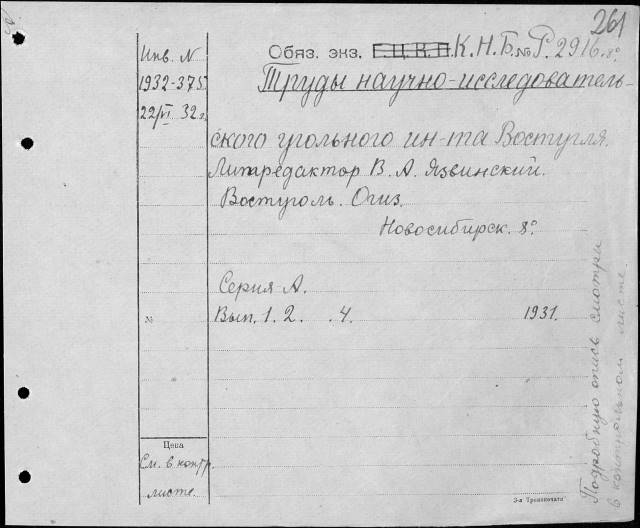 261
Инв. N
1932-375
22/VI 32 г.
Обяз. экз. Г.Ц.К.П. К.Н.Б. № Р. 2916. 8°
Труды научно-исследователь-
ского угольного ин-та Востугля.
Литредактор В. А. Язвинский.
Востуголь. Огиз.
Новосибирск. 8°.
Серия А.
№
Вып. 1. 2. .4. 1931.
Цена
См. в контр.
листе.
Подробную опись смотри
в контрольном листе.
3-я Транспечати